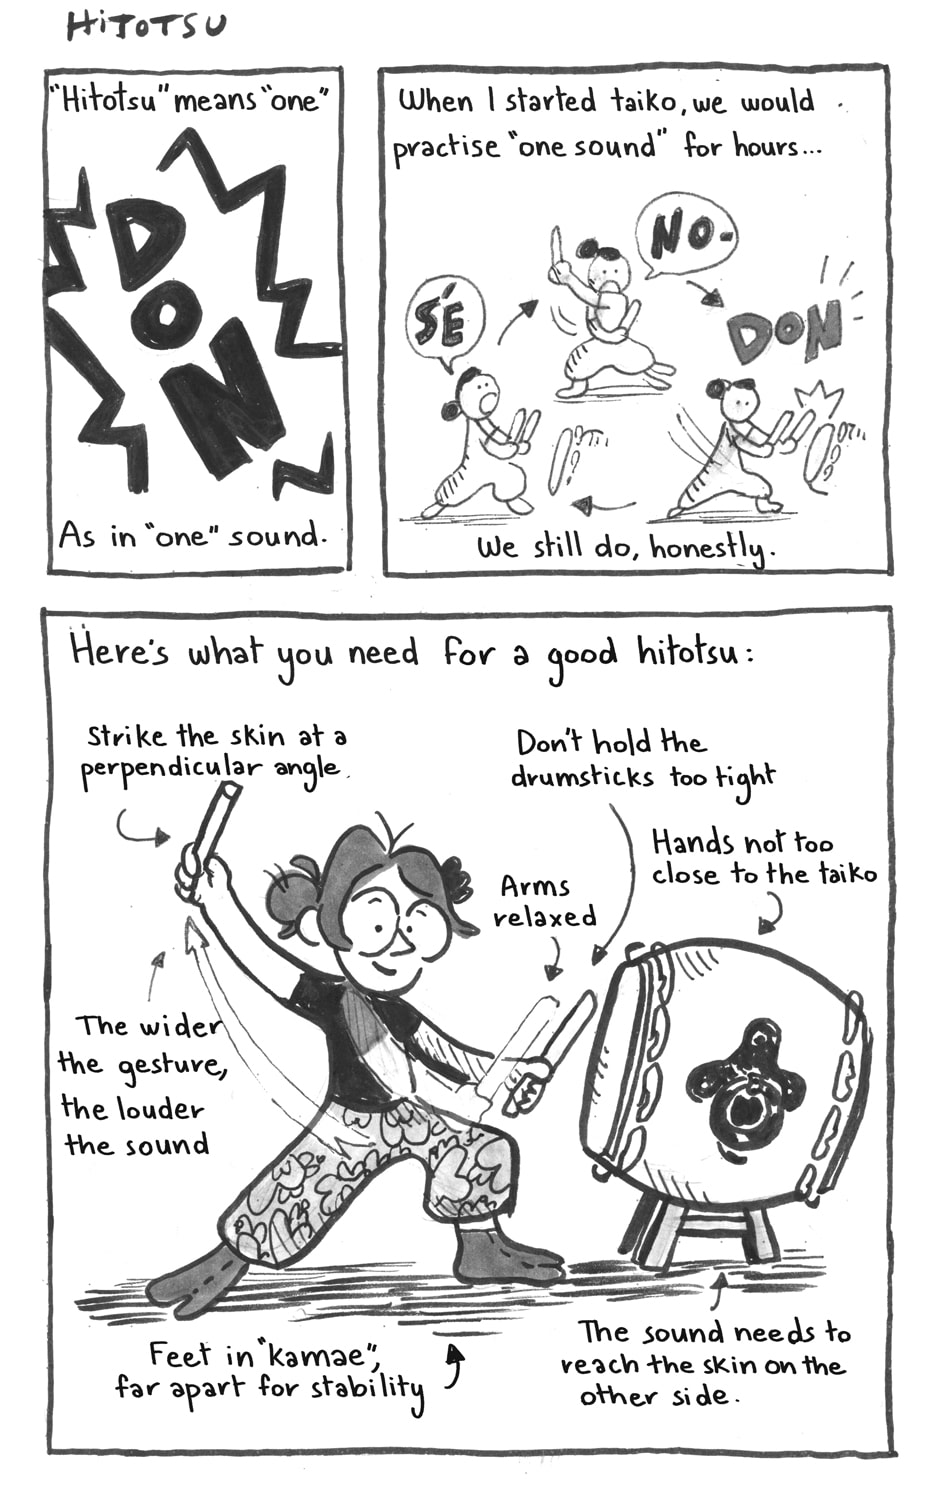 HiTOTSU
"Hitotsu" means "one"
DON
As in "one" sound.
When I started taiko, we would
practise "one sound" for hours...
SÉ
NO-
DON
We still do, honestly.
Here's what you need for a good hitotsu:
Strike the skin at a
perpendicular angle.
Don't hold the
drumsticks too tight
Hands not too
close to the taiko
Arms
relaxed
The wider
the gesture,
the louder
the sound
Feet in "kamae",
far apart for stability
The sound needs to
reach the skin on the
other side.